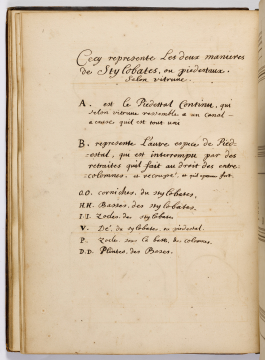 Cecy represente Les deux manieres
de Stylobates, ou piedestaux.
Selon vitruue.
A. est le Piedestal Continu, qui
selon vitruue ressemble a un canal
a cause quil est tout uni
B. represente Lautre espece de Pied-
estal, qui est interrompu par des
retraites quil fait au droit des entre-
colomnes. et recoupé. et
O.O. corniches du stylobates.
H.H. Basses. des stylobates.
I.I. Zocles. des stylobates
V. Dé. du stylobates, ou piedestal.
P. Zocle sous la base, des colomnes.
D.D. Plintes, des Bases.